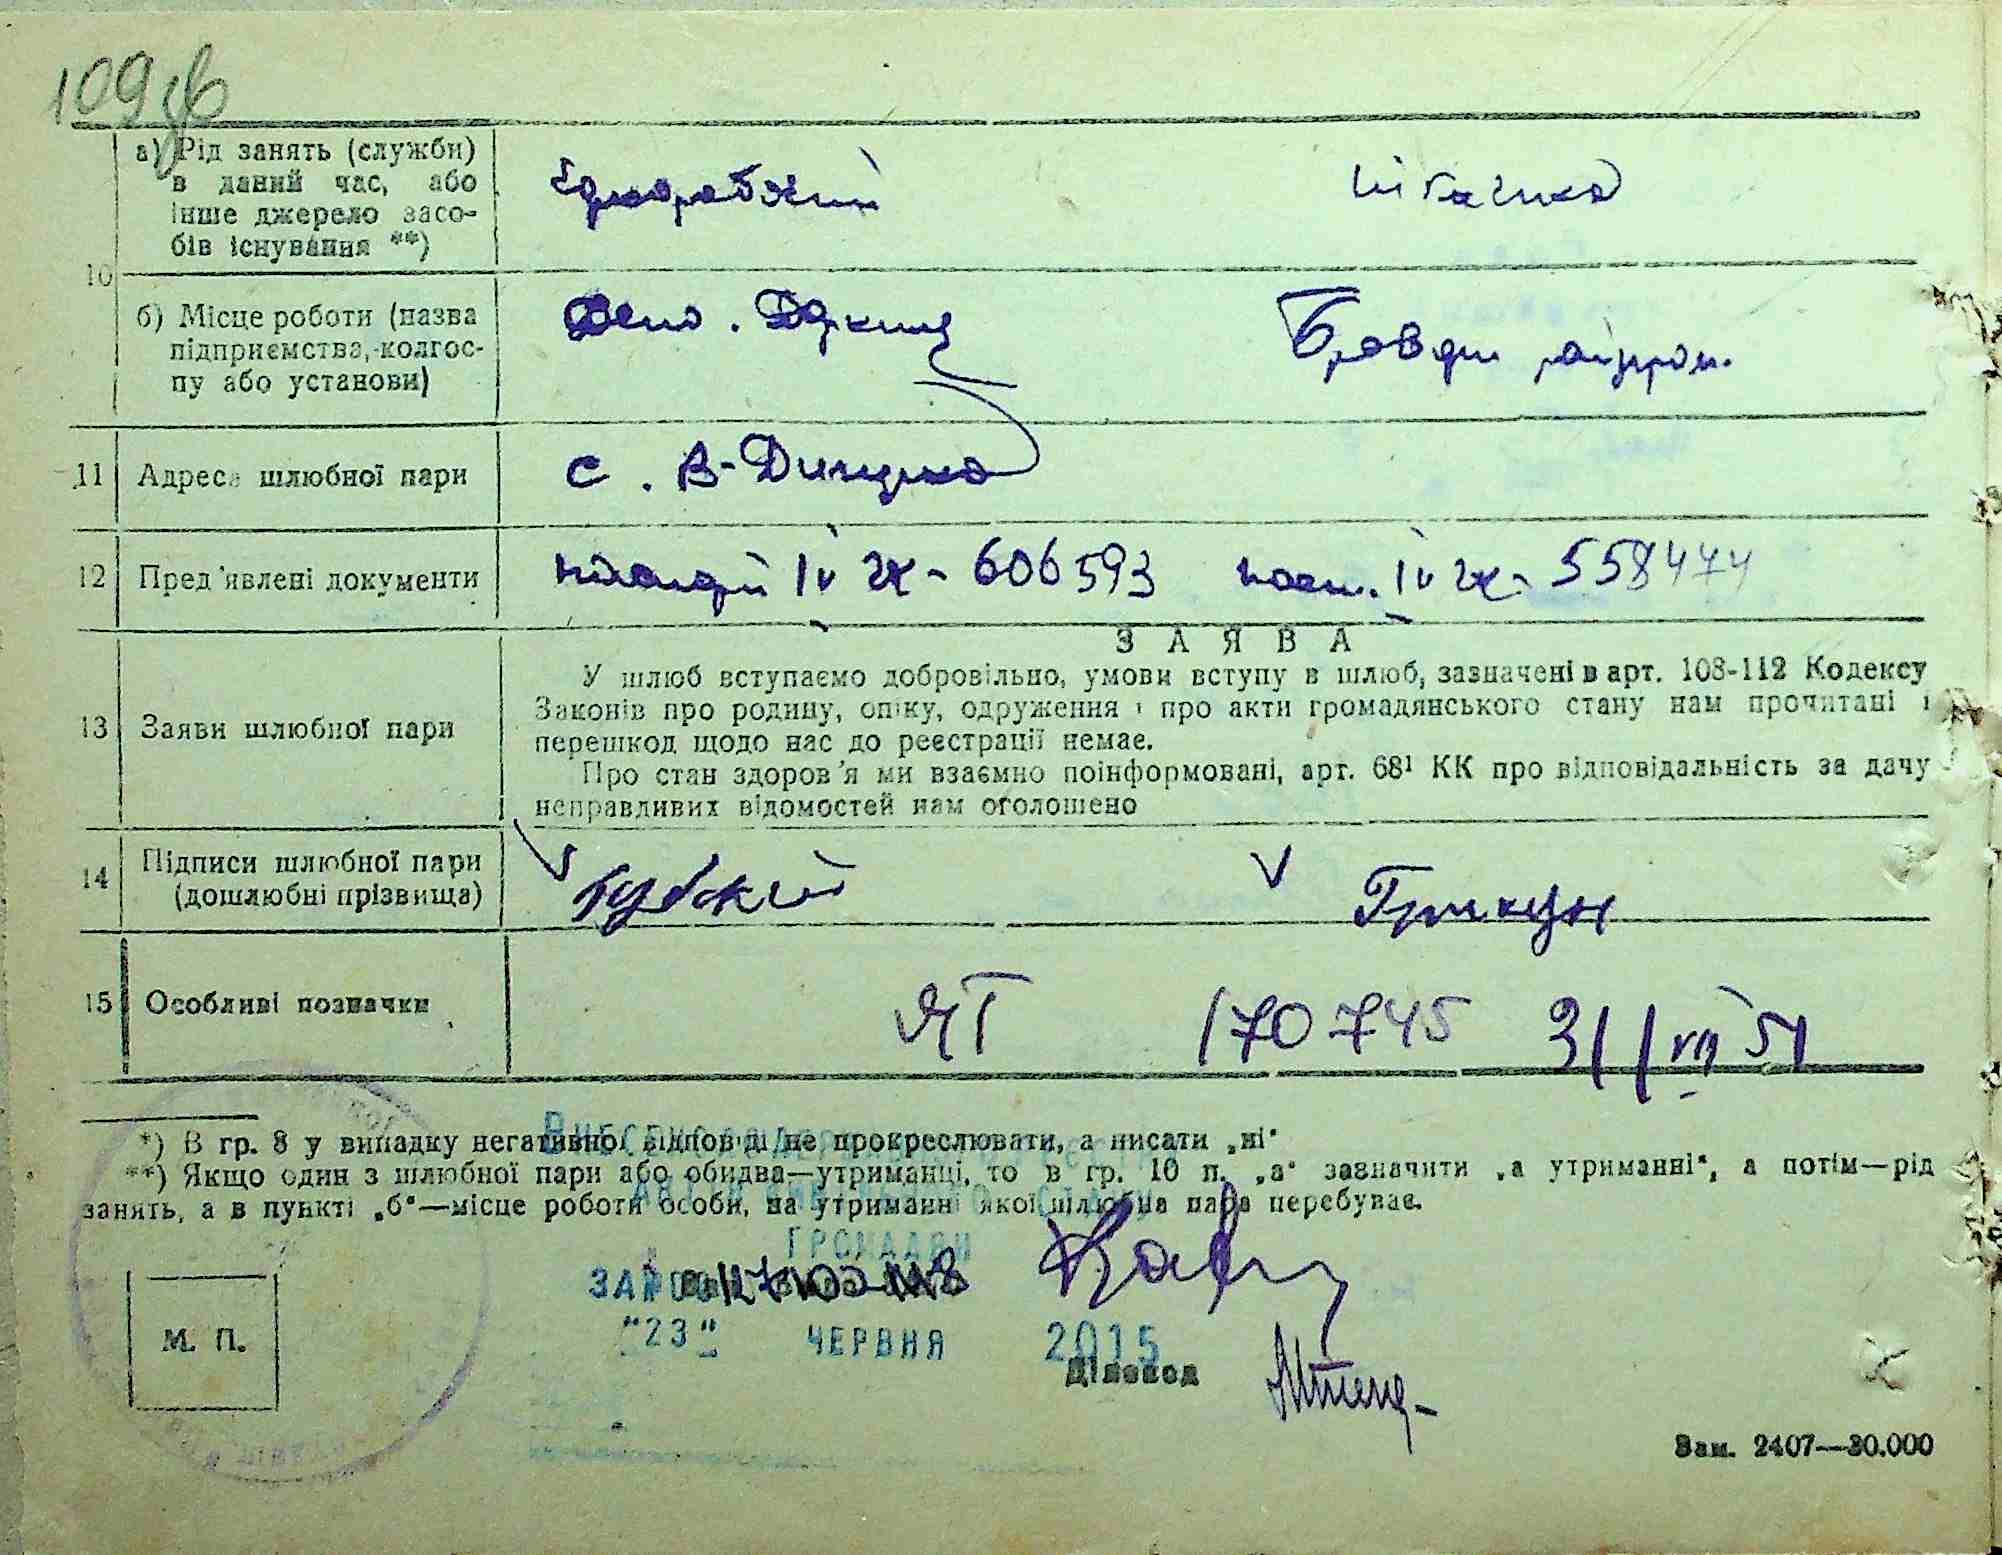 109
а) Рід занять (служби)
в даний час, або
інше джерело засо-
бів існування **)
швачка
10
б) Місце роботи (назва
підприємства, колгос-
пу або установи)
Депо.
11 Адреса шлюбної пари
с. В-Димерка
12 Пред'явлені документи
IV 606593 пасп. IV 558474
13 Заяви шлюбної пари
ЗАЯВА
У шлюб вступаємо добровільно, умови вступу в шлюб, зазначені в арт. 108-112 Кодексу
Законів про родину, опіку, одруження і про акти громадянського стану нам прочитані і
перешкод щодо нас до реєстрації немає.
Про стан здоров'я ми взаємно поінформовані, арт. 68¹ КК про відповідальність за дачу
неправдивих відомостей нам оголошено
14 Підписи шлюбної пари
(дошлюбні прізвища)
Губский Грикун
15 Особливі позначки
170745 31/VII 51
*) В гр. 8 у випадку негативної відповіді не прокреслювати, а писати „ні"
**) Якщо один з шлюбної пари або обидва—утриманці, то в гр. 10 п. „а" зазначити „а утриманні", а потім—рід
занять, а в пункті „б"—місце роботи особи, на утриманні якої шлюбна пара перебуває.
ГРОМАДЯН
"23" ЧЕРВНЯ 2015
М. П.
Діловод
Зам. 2407—30.000